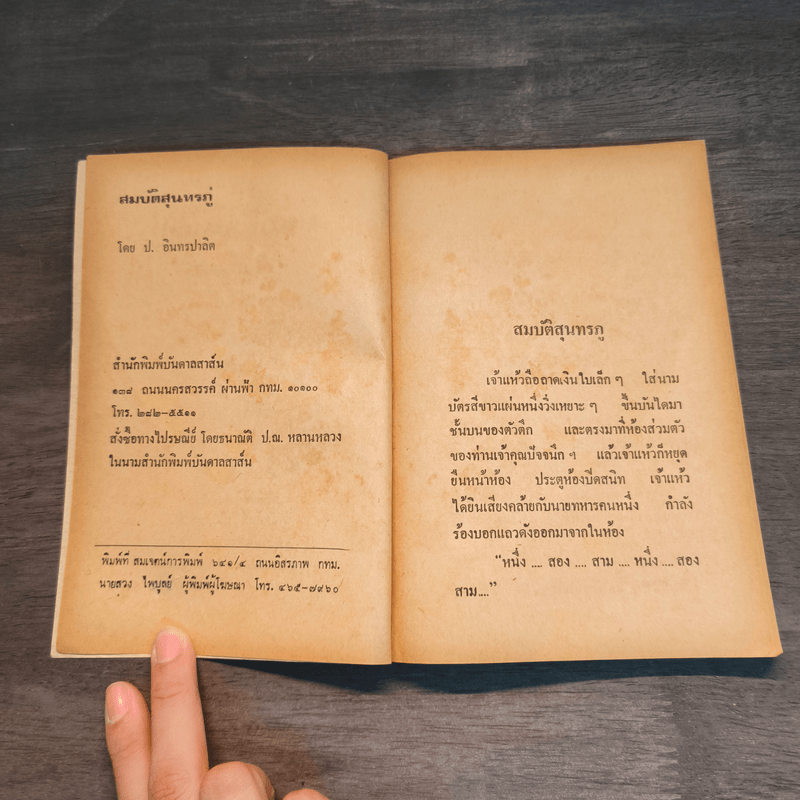 สมบัติสุนทรภู่
โดย ป. อินทรปาลิต
สำนักพิมพ์บันดาลสาส์น
๑๓๘ ถนนนครสวรรค์ ผ่านฟ้า กทม. ๑๐๑๐๐
โทร. ๒๘๒-๕๕๑๑
สั่งซื้อทางไปรษณีย์ โดยธนาณัติ ป.ณ. หลานหลวง
ในนามสำนักพิมพ์บันดาลสาส์น
พิมพ์ที่ สมเจตน์การพิมพ์ ๖๔๑/๔ ถนนอิสรภาพ กทม.
นายสวง ไพบูลย์ ผู้พิมพ์ผู้โฆษณา โทร. ๔๖๕-๗๙๖๐
สมบัติสุนทรภู
เจ้าแห้วถือถาดเงินใบเล็ก ๆ ใส่นาม
บัตรสีขาวแผ่นหนึ่งวิ่งเหยาะ ๆ ขึ้นบันไดมา
ชั้นบนของตัวตึก และตรงมาที่ห้องส่วมตัว
ของท่านเจ้าคุณปัจจนึก ๆ แล้วเจ้าแห้วก็หยุด
ยืนหน้าห้อง ประตูห้องปิดสนิท เจ้าแห้ว
ได้ยินเสียงคล้ายกับนายทหารคนหนึ่ง กำลัง
ร้องบอกแถวดังออกมาจากในห้อง
“หนึ่ง .... สอง .... สาม .... หนึ่ง .... สอง
สาม....”